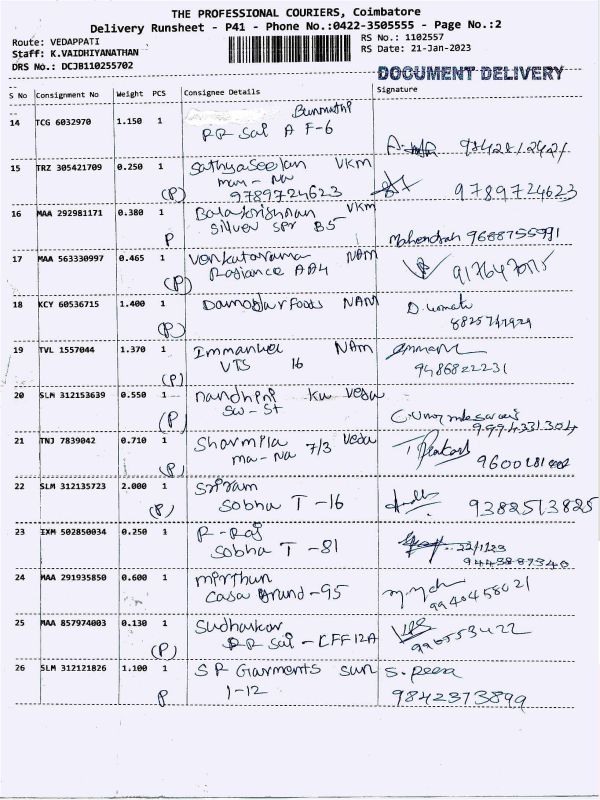 THE PROFESSIONAL COURIERS, Coimbatore
Delivery Runsheet - P41 - Phone No.:0422-3505555 - Page No.:2
Route: VEDAPPATI
RS No.: 1102557
Staff: K.VAIDHIYANATHAN
RS Date: 21-Jan-2023
DRS No.: DCJB110255702
DOCUMENT DELIVERY
S No Consignment No Weight PCS Consignee Details Signature
14 TCG 6032970 1.150 1
RR Sai A F-6
15 TRZ 305421709 0.250 1 Sathyaseelan VKM
man - Na
(P) 9789724623 9789724623
16 MAA 292981171 0.380 1 Balakrishnan VKM
P Silver Spr B5 Mahendran
17 MAA 563330997 0.465 1 Venkatarama NAM
(P) Radiance AA4
18 KCY 60536715 1.400 1 Damodar Foods NAM
(P)
19 TVL 1557044 1.370 1 Immanuel NAM
VTS 16
(P) 9486822231
20 SLM 312153639 0.550 1 nandhini KU Veda
SW - St
(P) 9994331304
21 TNJ 7839042 0.710 1 Sharmila 7/3 Veda
ma - Na
(P)
22 SLM 312135723 2.000 1 Sriram
(P) Sobha T - 16 9382513825
23 IXM 502850034 0.250 1 R - Raj
Sobha T - 81 22/1/23
9443887340
24 MAA 291935850 0.600 1 mirthun
Casa Grand - 95 9940458021
25 MAA 857974003 0.130 1 Sudhakar
(P) RR Sai - CFF 12A
26 SLM 312121826 1.100 1 SR Garments Sun S. Peer
P 1-12 9842373899